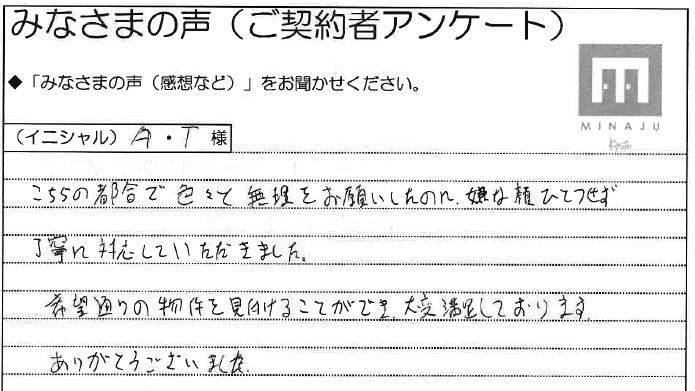 みなさまの声（ご契約者アンケート）
◆「みなさまの声（感想など）」をお聞かせください。
MINAJU
Kyoto
（イニシャル）A・T 様
こちらの都合で色々と無理をお願いしたのに、嫌な顔ひとつせず
丁寧に対応していただきました。
希望通りの物件を見付けることができ、大変満足しております。
ありがとうございました。